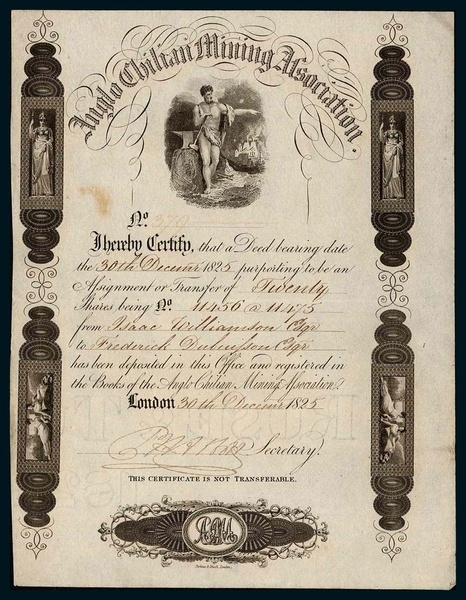 Anglo Chilian Mining Association.
No. 370
I hereby Certify, that a Deed bearing date
the 30th Decemr 1825 purporting to be an
Assignment or Transfer of Twenty
Shares being No. 11456 @ 11475
from Isaac Williamson Esqr
to Frederick Esqr
has been deposited in this Office and registered in
the Books of the Anglo Chilian Mining Association.
London 30th Decemr 1825
Secretary.
THIS CERTIFICATE IS NOT TRANSFERABLE.